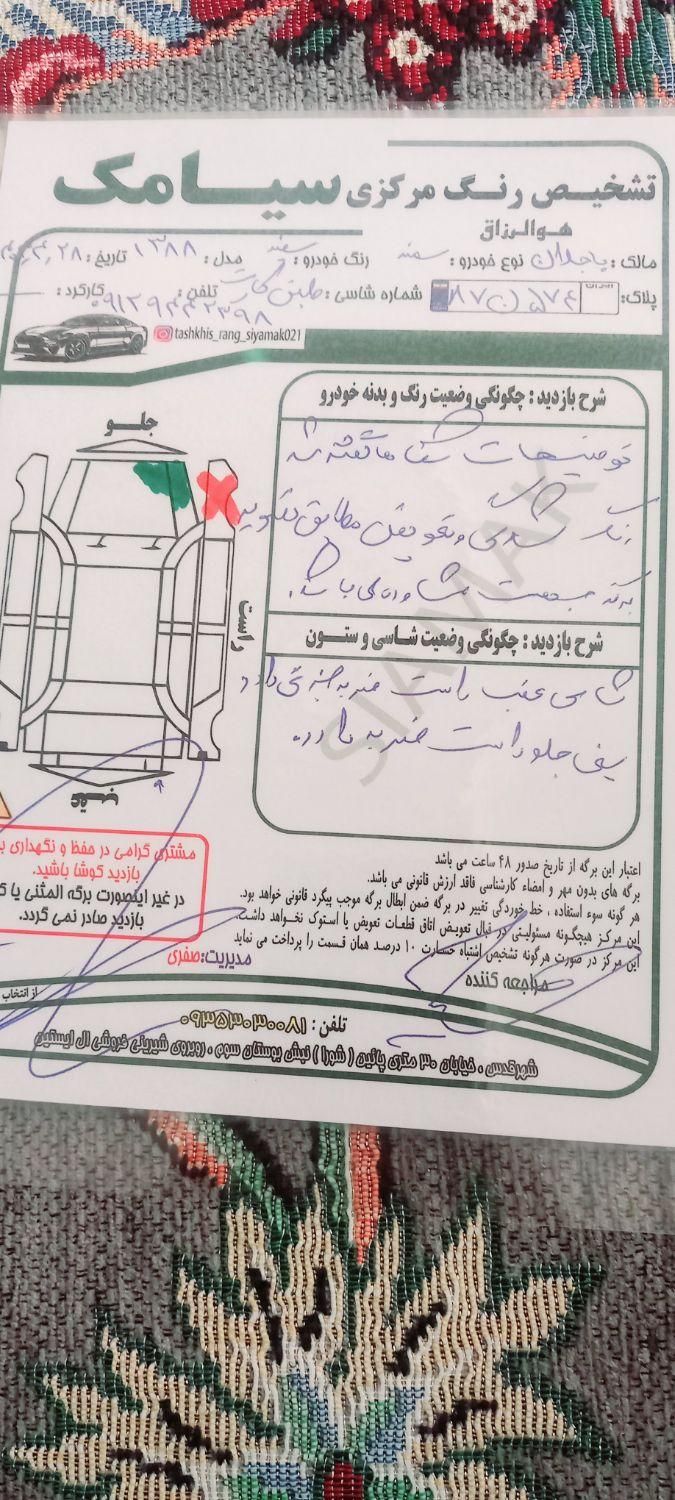 تشخیص رنگ مرکزی سیامک
هوالرزاق
مالک: باجلان نوع خودرو: سمند رنگ خودرو: سفید مدل: ۱۳۸۸ تاریخ:
پلاک: ایران شماره شاسی: طبق کارت تلفن: کارکرد:
tashkhis_rang_siyamak021
شرح بازدید: چگونگی وضعیت رنگ و بدنه خودرو
توضیحات شفاها گفته شد
رنگ شدگی و تعویض مطابق تصویر
برگه جهت مشاوره می باشد.
شرح بازدید: چگونگی وضعیت شاسی و ستون
شاسی عقب راست ضربه
سینی جلو راست ضربه دارد.
جلو
راست
عقب
SIAMAK
مشتری گرامی در حفظ و نگهداری
بازدید کوشا باشید.
در غیر اینصورت برگه المثنی یا
بازدید صادر نمی گردد.
اعتبار این برگه از تاریخ صدور ۴۸ ساعت می باشد
برگه های بدون مهر و امضاء کارشناسی فاقد ارزش قانونی می باشد.
هر گونه سوء استفاده ، خط خوردگی تغییر در برگه ضمن ابطال برگه موجب پیگرد قانونی خواهد بود.
این مرکز هیچگونه مسئولیتی در قبال تعویض اتاق قطعات تعویض یا استوک نخواهد داشت.
این مرکز در صورت هرگونه تشخیص اشتباه خسارت ۱۰ درصد همان قسمت را پرداخت می نماید
مدیریت: صفری
مراجعه کننده
از انتخاب
تلفن: ۰۹۳۵۳۰۳۰۰۸۱
شهرقدس ، خیابان ۳۰ متری پائین ( شورا ) نبش بوستان سوم ، روبروی شیرینی فروشی ال ایستین